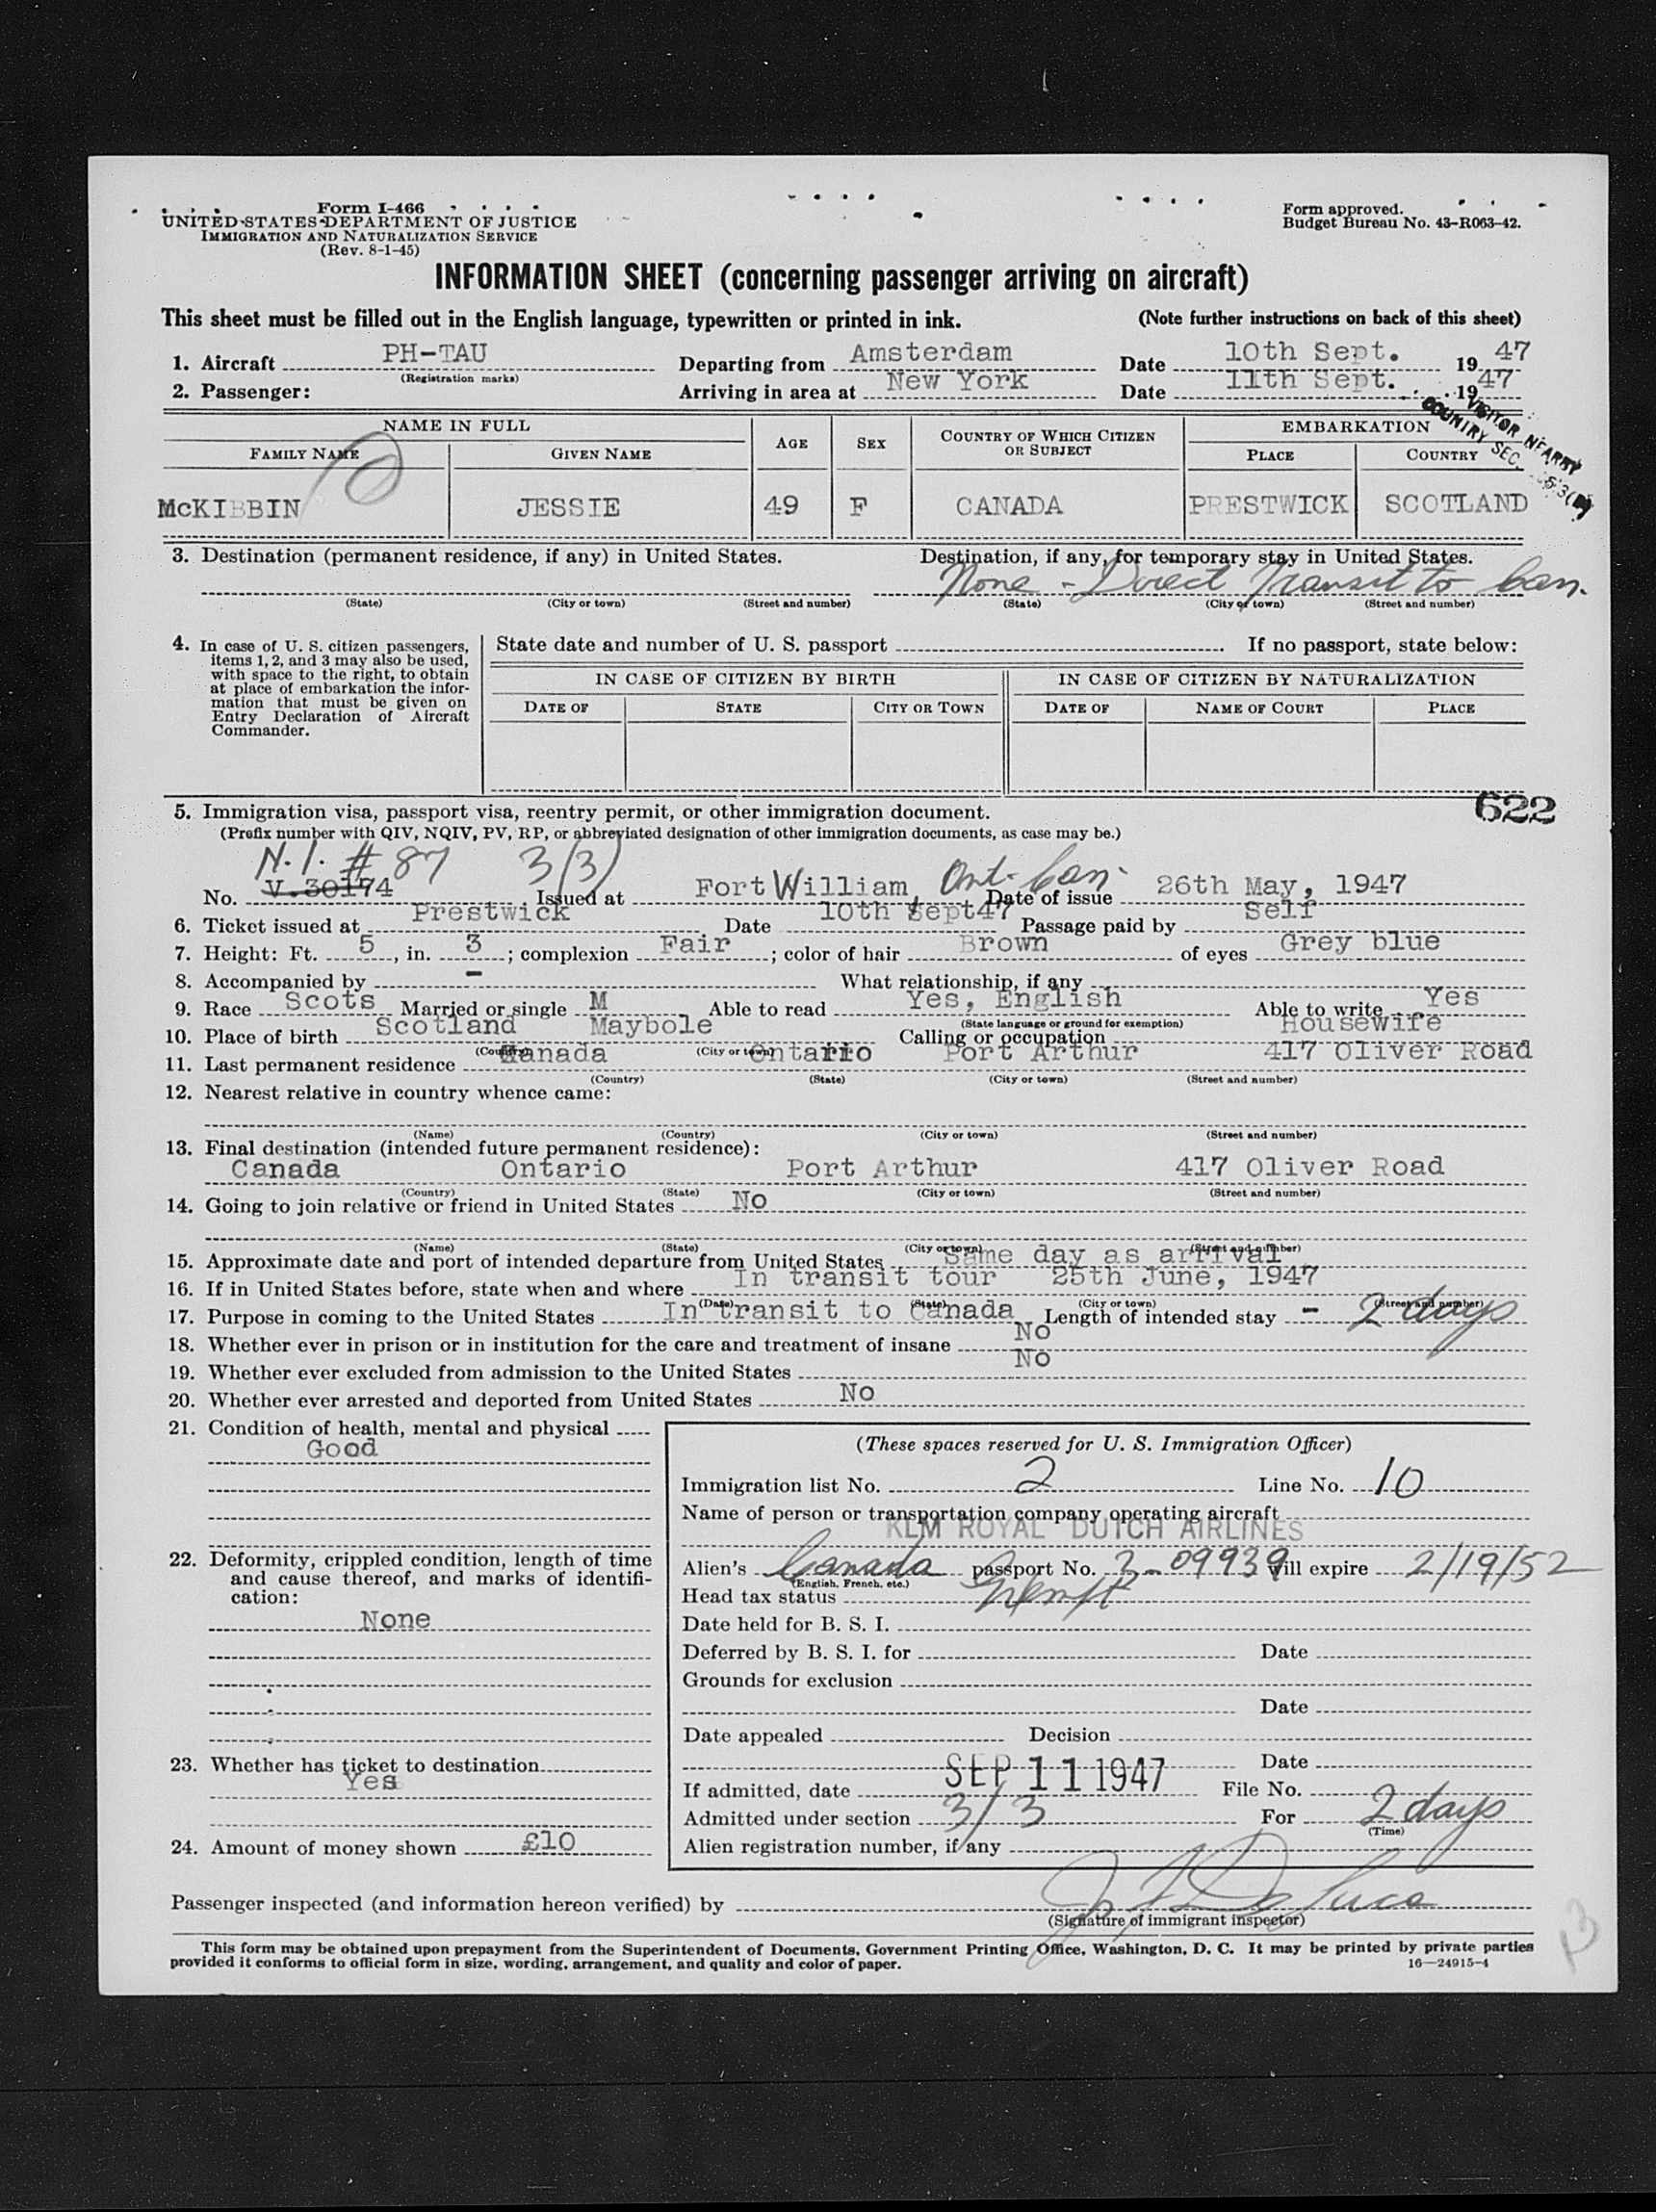 Form I-466
UNITED STATES DEPARTMENT OF JUSTICE
IMMIGRATION AND NATURALIZATION SERVICE
(Rev. 8-1-45)
Form approved.
Budget Bureau No. 43-R063-42.
INFORMATION SHEET (concerning passenger arriving on aircraft)
This sheet must be filled out in the English language, typewritten or printed in ink. (Note further instructions on back of this sheet)
1. Aircraft PH-TAU Departing from Amsterdam Date 10th Sept. 1947
(Registration marks)
2. Passenger: Arriving in area at New York Date 11th Sept. 1947
VISITOR NEARBY
COUNTRY SEC.
NAME IN FULL AGE SEX COUNTRY OF WHICH CITIZEN OR SUBJECT EMBARKATION
FAMILY NAME GIVEN NAME PLACE COUNTRY
McKIBBIN JESSIE 49 F CANADA PRESTWICK SCOTLAND
3. Destination (permanent residence, if any) in United States. Destination, if any, for temporary stay in United States.
None - Direct Transit to Can.
(State) (City or town) (Street and number) (State) (City or town) (Street and number)
4. In case of U. S. citizen passengers, items 1, 2, and 3 may also be used, with space to the right, to obtain at place of embarkation the information that must be given on Entry Declaration of Aircraft Commander.
State date and number of U. S. passport If no passport, state below:
IN CASE OF CITIZEN BY BIRTH IN CASE OF CITIZEN BY NATURALIZATION
DATE OF STATE CITY OR TOWN DATE OF NAME OF COURT PLACE
622
5. Immigration visa, passport visa, reentry permit, or other immigration document.
(Prefix number with QIV, NQIV, PV, RP, or abbreviated designation of other immigration documents, as case may be.)
N.I. # 87 3(3)
No. V.30174 Issued at Fort William, Ont. Can. Date of issue 26th May, 1947
6. Ticket issued at Prestwick Date 10th Sept47 Passage paid by Self
7. Height: Ft. 5, in. 3; complexion Fair; color of hair Brown of eyes Grey blue
8. Accompanied by - What relationship, if any
9. Race Scots Married or single M Able to read Yes, English Able to write Yes
(State language or ground for exemption)
10. Place of birth Scotland Maybole Calling or occupation Housewife
(Country) (City or town)
11. Last permanent residence Canada Ontario Port Arthur 417 Oliver Road
(Country) (State) (City or town) (Street and number)
12. Nearest relative in country whence came:
(Name) (Country) (City or town) (Street and number)
13. Final destination (intended future permanent residence):
Canada Ontario Port Arthur 417 Oliver Road
(Country) (State) (City or town) (Street and number)
14. Going to join relative or friend in United States No
(Name) (State) (City or town) (Street and number)
15. Approximate date and port of intended departure from United States Same day as arrival
16. If in United States before, state when and where In transit tour 25th June, 1947
(Date) (State) (City or town) (Street and number)
17. Purpose in coming to the United States In transit to Canada Length of intended stay - 2 days
18. Whether ever in prison or in institution for the care and treatment of insane No
19. Whether ever excluded from admission to the United States No
20. Whether ever arrested and deported from United States No
21. Condition of health, mental and physical
Good
22. Deformity, crippled condition, length of time and cause thereof, and marks of identification:
None
23. Whether has ticket to destination
Yes
24. Amount of money shown £10
(These spaces reserved for U. S. Immigration Officer)
Immigration list No. 2 Line No. 10
Name of person or transportation company operating aircraft
KLM ROYAL DUTCH AIRLINES
Alien's Canada passport No. 3-09939 will expire 2/19/52
(English, French, etc.)
Head tax status Exempt
Date held for B. S. I.
Deferred by B. S. I. for Date
Grounds for exclusion
Date
Date appealed Decision
Date
If admitted, date SEP 11 1947 File No.
Admitted under section 3/3 For 2 days
(Time)
Alien registration number, if any
Passenger inspected (and information hereon verified) by
(Signature of immigrant inspector)
This form may be obtained upon prepayment from the Superintendent of Documents, Government Printing Office, Washington, D. C. It may be printed by private parties
provided it conforms to official form in size, wording, arrangement, and quality and color of paper.
16—24915-4
13